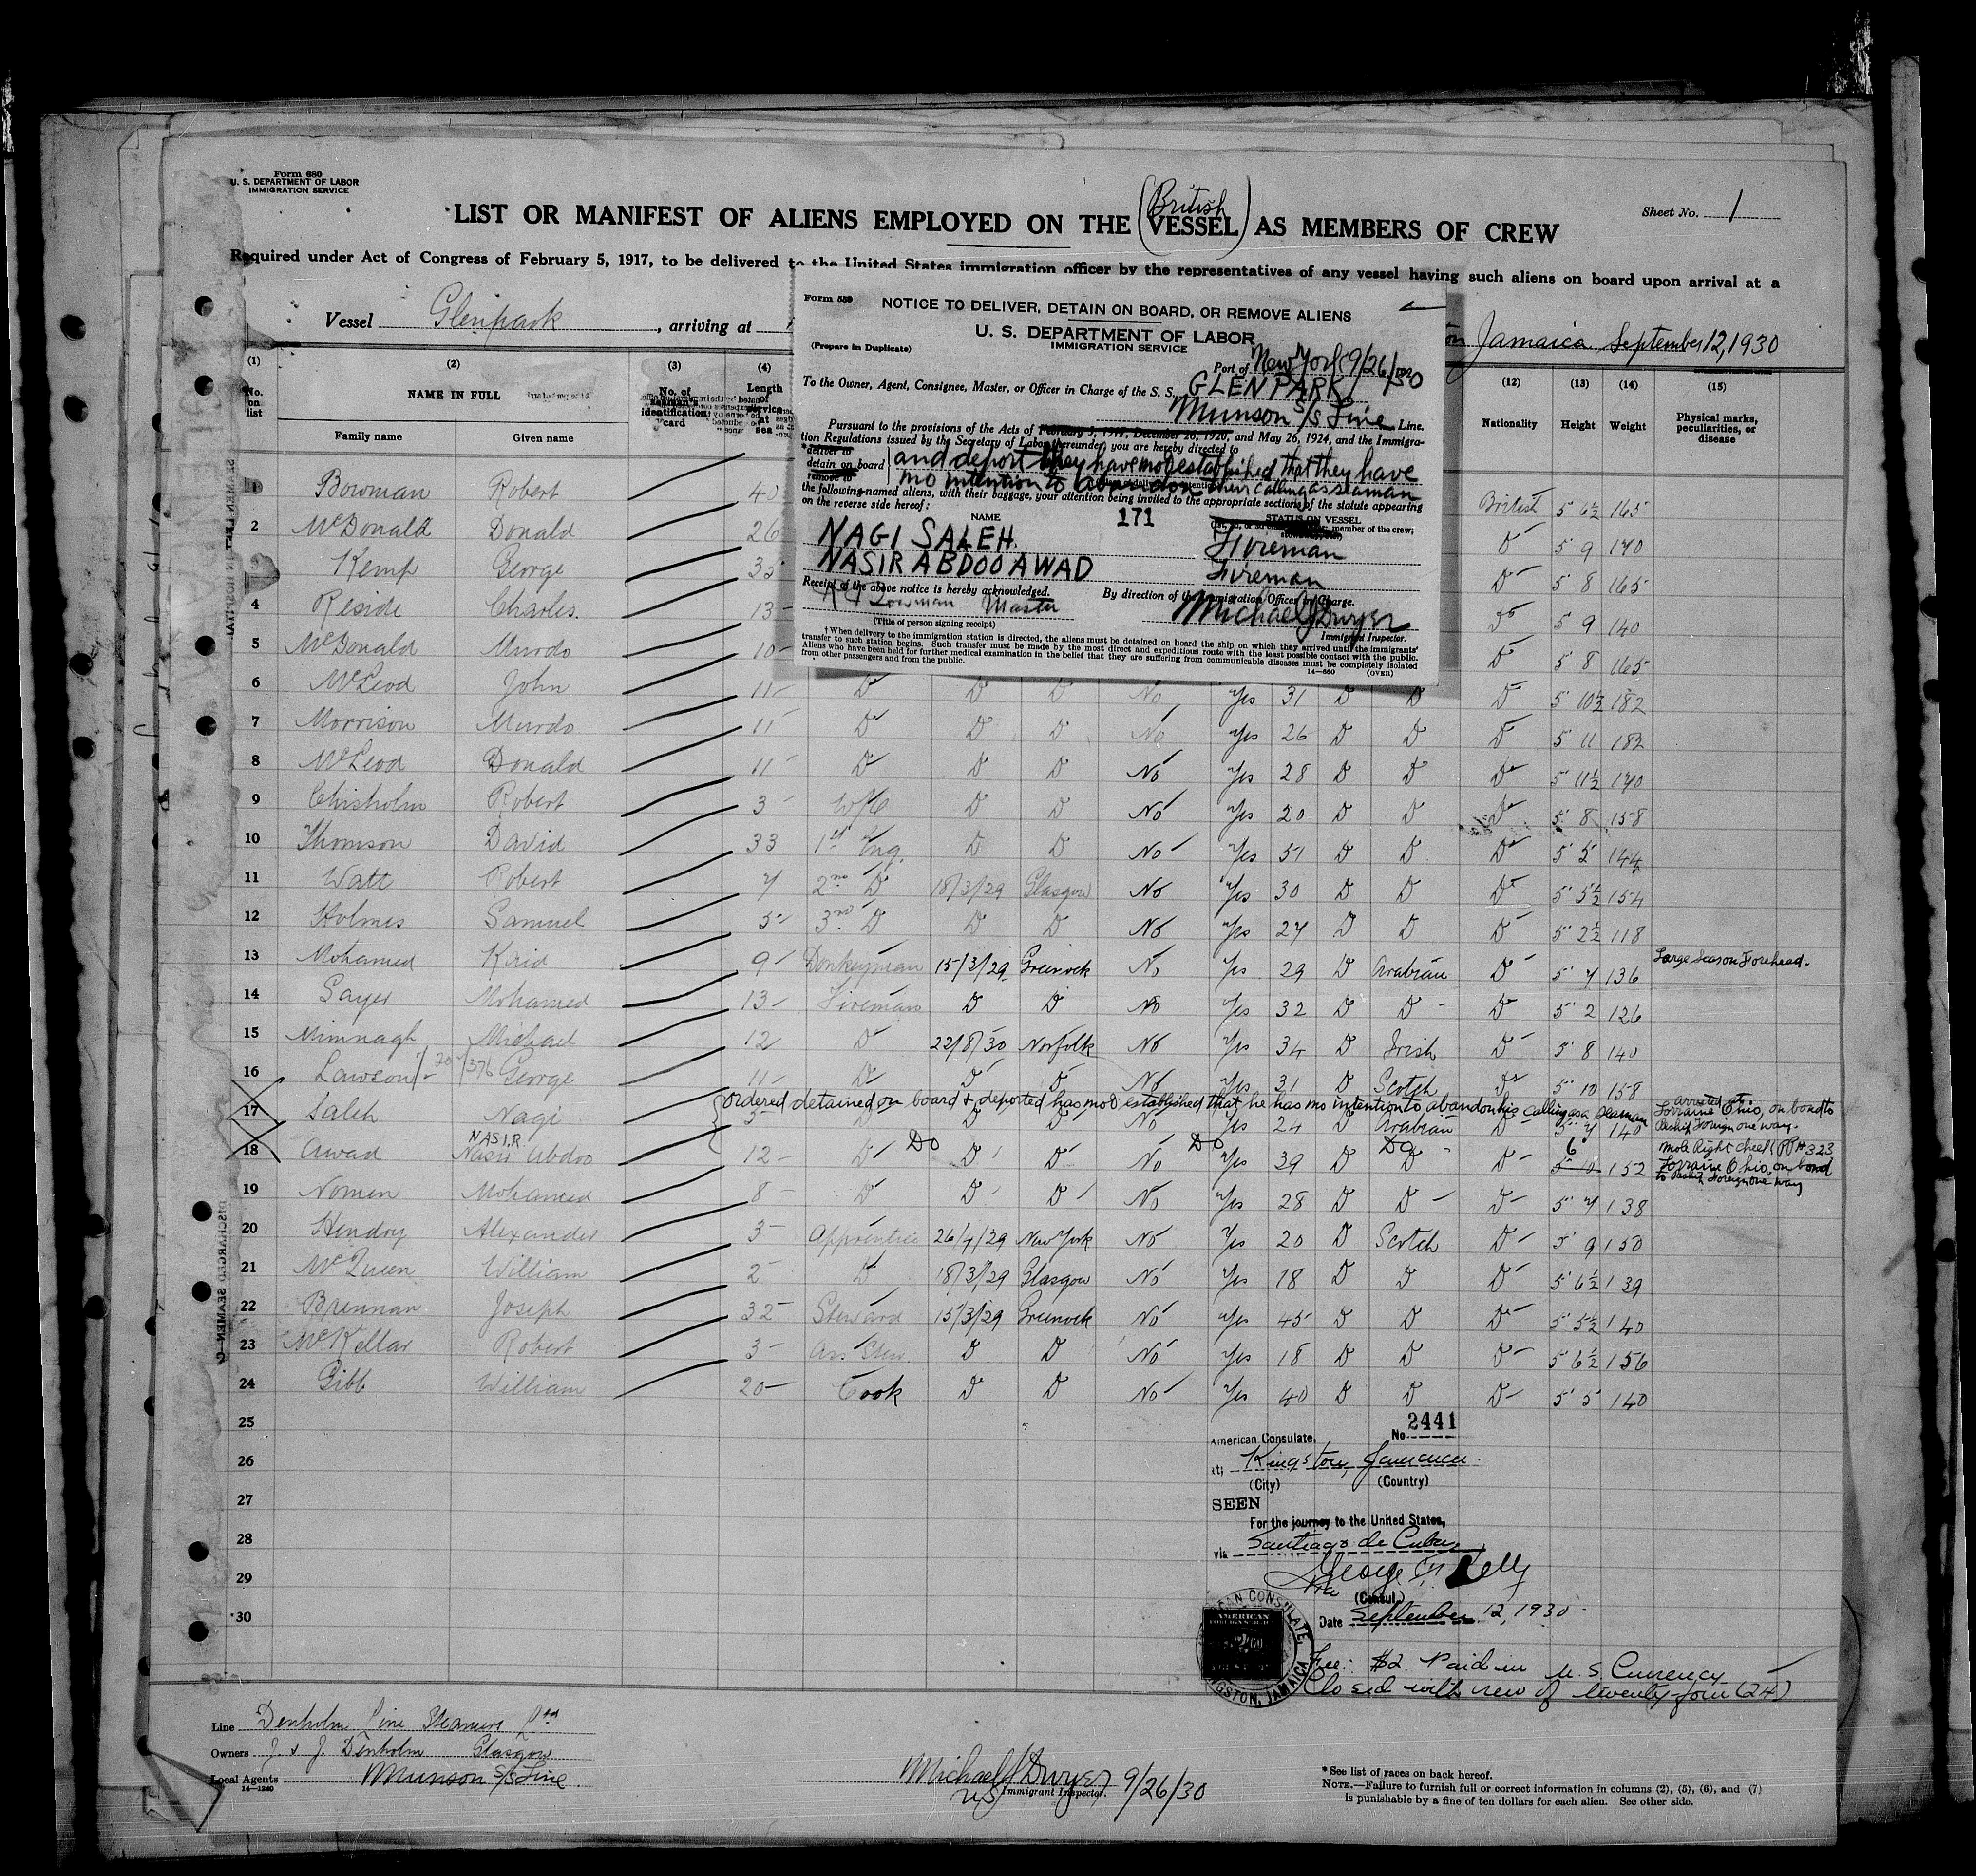 Form 680
U. S. DEPARTMENT OF LABOR
IMMIGRATION SERVICE
Sheet No. 1
LIST OR MANIFEST OF ALIENS EMPLOYED ON THE (British VESSEL) AS MEMBERS OF CREW
Required under Act of Congress of February 5, 1917, to be delivered to the United States immigration officer by the representatives of any vessel having such aliens on board upon arrival at a
Vessel Glenpark, arriving at
Jamaica September 12, 1930
Form 559
NOTICE TO DELIVER, DETAIN ON BOARD, OR REMOVE ALIENS
U. S. DEPARTMENT OF LABOR
IMMIGRATION SERVICE
(Prepare in Duplicate)
Port of New York 9/26/30
To the Owner, Agent, Consignee, Master, or Officer in Charge of the S. S. GLENPARK
Munson S/S Line Line.
Pursuant to the provisions of the Acts of February 5, 1917, December 26, 1920, and May 26, 1924, and the Immigra-
tion Regulations issued by the Secretary of Labor thereunder, you are hereby directed to
*deliver to
detain on board
remove to
and deport they have not established that they have
no intention to abandon their calling as seaman
the following-named aliens, with their baggage, your attention being invited to the appropriate sections of the statute appearing
on the reverse side hereof:
NAME 171 STATUS ON VESSEL
member of the crew;
NAGI SALEH Fireman
NASIR ABDOO AWAD Fireman
Receipt of the above notice is hereby acknowledged. By direction of the Immigration Officer in Charge.
Bowman Master Michael J Dwyer
(Title of person signing receipt) Immigrant Inspector.
† When delivery to the immigration station is directed, the aliens must be detained on board the ship on which they arrived until the immigrants'
transfer to such station begins. Such transfer must be made by the most direct and expeditious route with the least possible contact with the public.
Aliens who have been held for further medical examination in the belief that they are suffering from communicable diseases must be completely isolated
from other passengers and from the public.
14—660 (OVER)
(1) (2) (3) (4) (12) (13) (14) (15)
No. on list NAME IN FULL No. of seaman's identification card Length of service at sea Nationality Height Weight Physical marks, peculiarities, or disease
Family name Given name
1 Bowman Robert 40 British 5 6½ 165
2 McDonald Donald 26 D 5 9 170
Kemp George 35 D 5 8 165
4 Reside Charles. 13 D 5 9 140
5 McDonald Murdo 10 D 5 8 165
6 McLeod John 11 D D D No Yes 31 D D D 5 10½ 182
7 Morrison Murdo 11 D D D No Yes 26 D D D 5 11 182
8 McLeod Donald 11 D D D No Yes 28 D D D 5 11½ 170
9 Chisholm Robert 3 D D No Yes 20 D D D 5 8 158
10 Thomson David 33 1st Eng. D D No Yes 51 D D D 5 5 144
11 Watt Robert 7 2nd D 18/3/29 Glasgow No Yes 30 D D D 5 5½ 154
12 Holmes Samuel 5 3rd D D D No Yes 27 D D D 5 2½ 118
13 Mohamed Kaid 9 Donkeyman 15/3/29 Greenock No Yes 29 D Arabian D 5 7 136 Large Scar on Forehead.
14 Sayer Mohamed 13 Fireman D D No Yes 32 D D D 5 2 126
15 Mimnagh Michael 12 D 22/8/30 Norfolk No Yes 34 D Irish D 5 8 140
16 Lawson George 11 D D D No Yes 31 D Scotch D 5 10 158
ordered detained on board & deported has not established that he has no intention to abandon his calling as a seaman
17 Saleh Nagi 5 D D D No Yes 24 D Arabian D 5 7 140 arrested at Lorraine Ohio, on bond to Reship Foreign one way.
18 Awad NASIR Nasir Abdoo 12 D Do D D No Do Yes 39 D Do D D 6 152 Mole Right Cheek Lorraine Ohio, on bond to Reship Foreign one way
19 Nomen Mohamed 8 D D D No Yes 28 D D D 5 7 138
20 Hendry Alexander 3 Apprentice 26/4/29 New York No Yes 20 D Scotch D 5 9 150
21 McQueen William 2 D 18/3/29 Glasgow No Yes 18 D D D 5 6½ 139
22 Brennan Joseph 32 Steward 15/3/29 Greenock No Yes 45 D D D 5 5½ 140
23 McKellar Robert 3 Ass. Stew. D D No Yes 18 D D D 5 6½ 156
24 Gibb William 20 Cook D D No Yes 40 D D D 5 5 140
25
26
27
28
29
30
No. 2441
American Consulate,
at Kingston, Jamaica.
(City) (Country)
SEEN
For the journey to the United States,
via Santiago de Cuba
George Kelly
Vice (Consul.)
Date September 12, 1930
AMERICAN CONSULATE, KINGSTON, JAMAICA
Fee: $2 Paid in U. S. Currency
Closed with crew of twenty-four (24)
Line Denholm Line Steamers Ltd
Owners J. & J. Denholm Glasgow
Local Agents Munson S/S Line
14—1240
Michael J Dwyer 9/26/30
US Immigrant Inspector.
* See list of races on back hereof.
NOTE.—Failure to furnish full or correct information in columns (2), (5), (6), and (7)
is punishable by a fine of ten dollars for each alien. See other side.